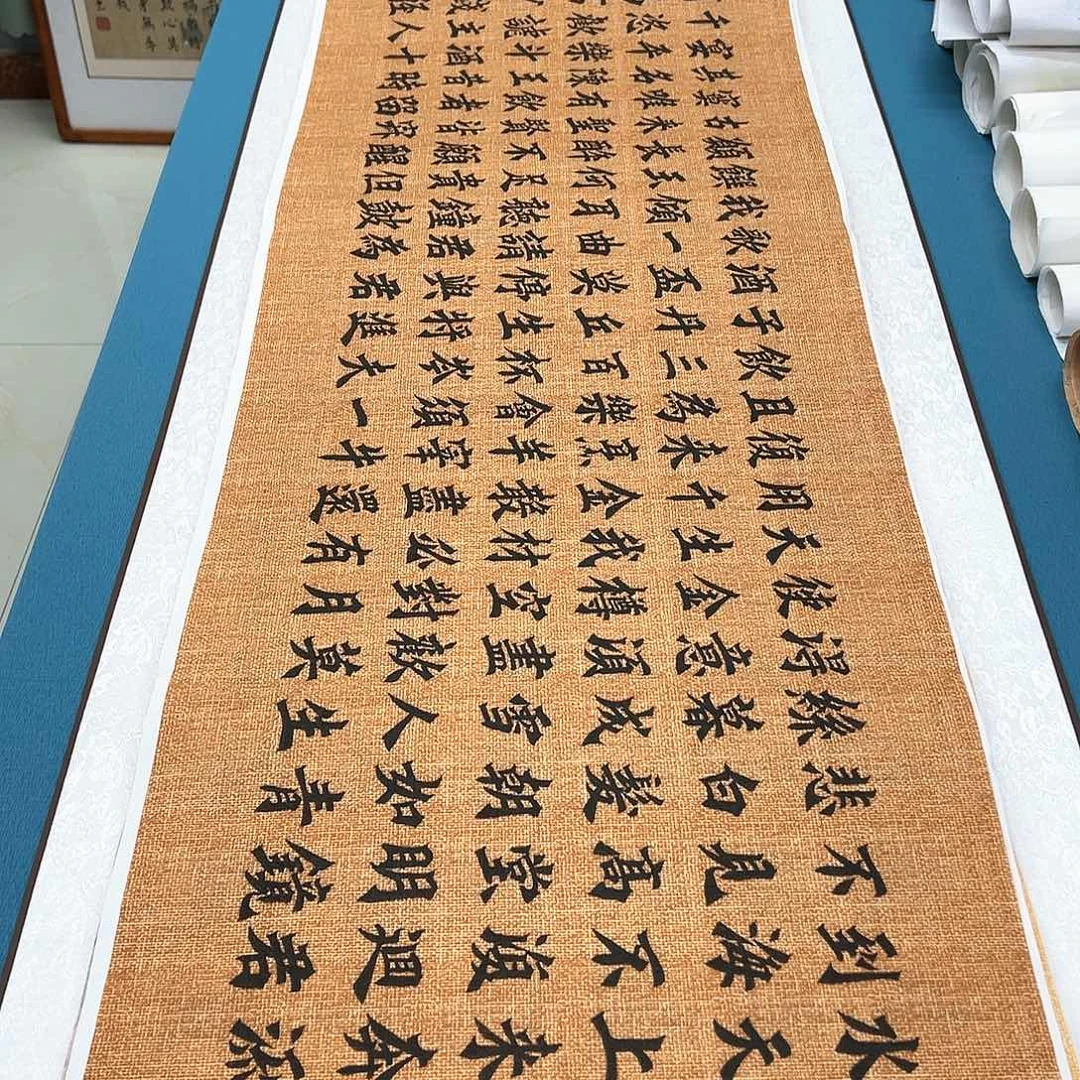 水天上来奔流
到海不復迴君
不見高堂明鏡
悲白髮朝如青
絲暮成雪人生
得意須盡歡莫
使金樽空對月
天生我材必有
用千金散盡還
復来烹羊宰牛
且為樂會須一
飲三百杯岑夫
子丹丘生將進
酒盃莫停與君
歌一曲請君為
我傾耳聽鐘鼓
饌玉何足貴但
願長醉不願醒
古来聖賢皆寂
寞惟有飲者留
其名陳王昔時
宴平樂斗酒十
千恣歡謔主人